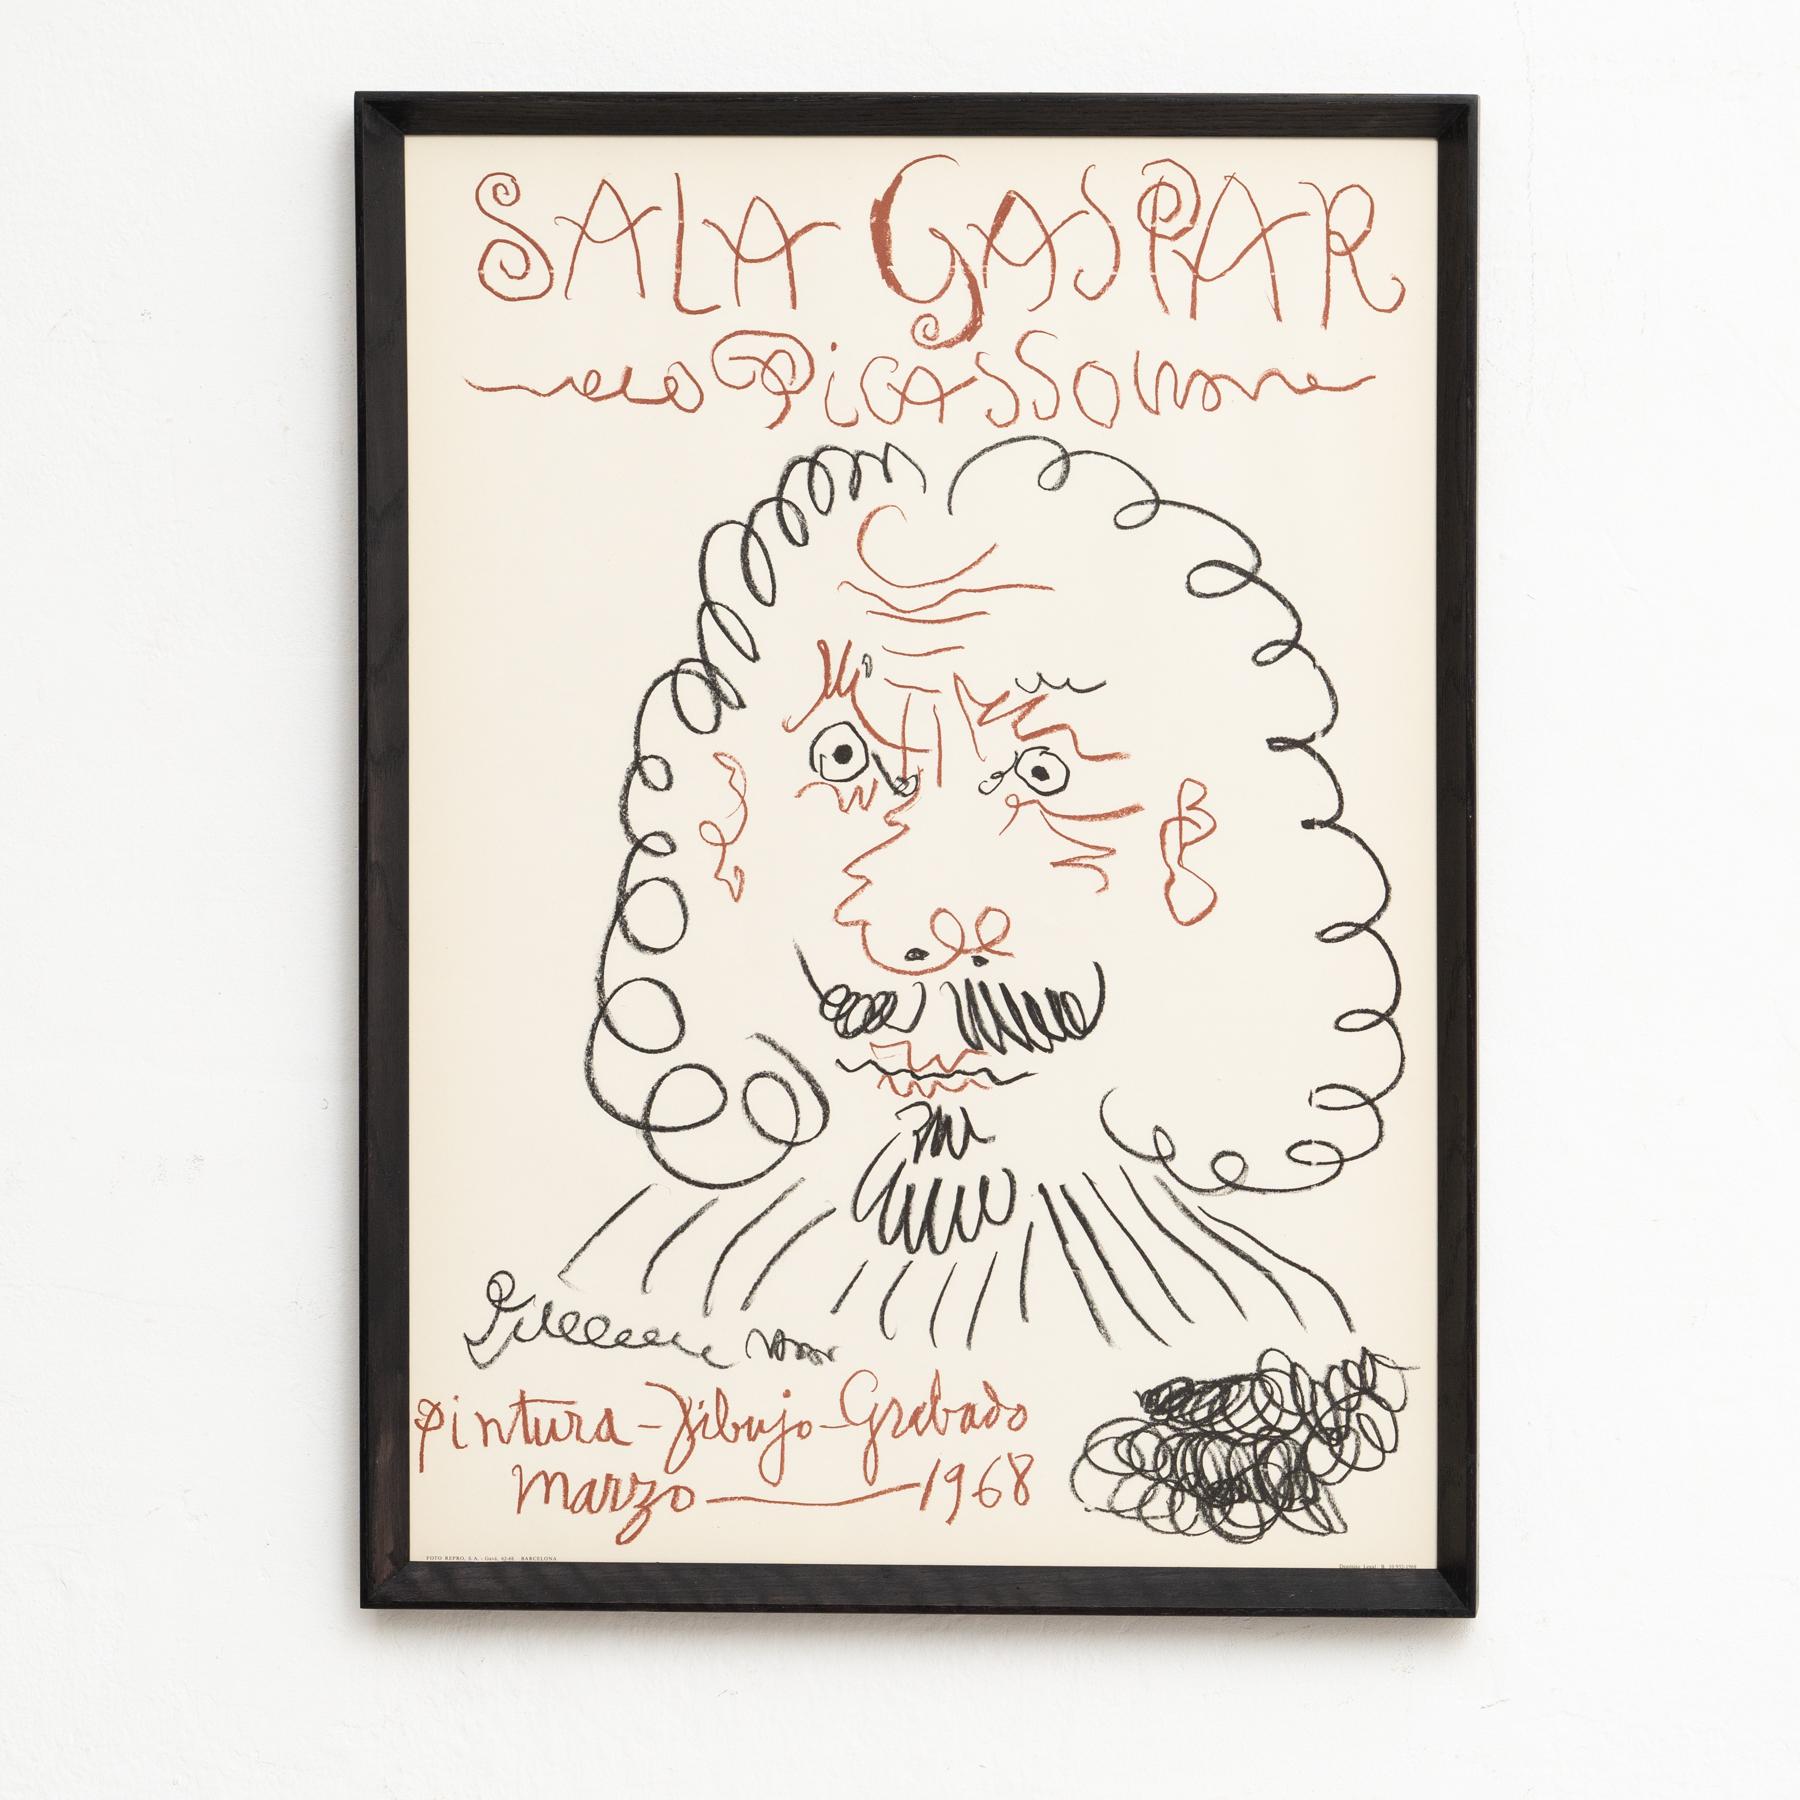 SALA GASPAR
Picasso
pintura - Dibujo - Grabado
marzo — 1968
FOTO REPRO, S.A. - Gavá, 62-68 - BARCELONA